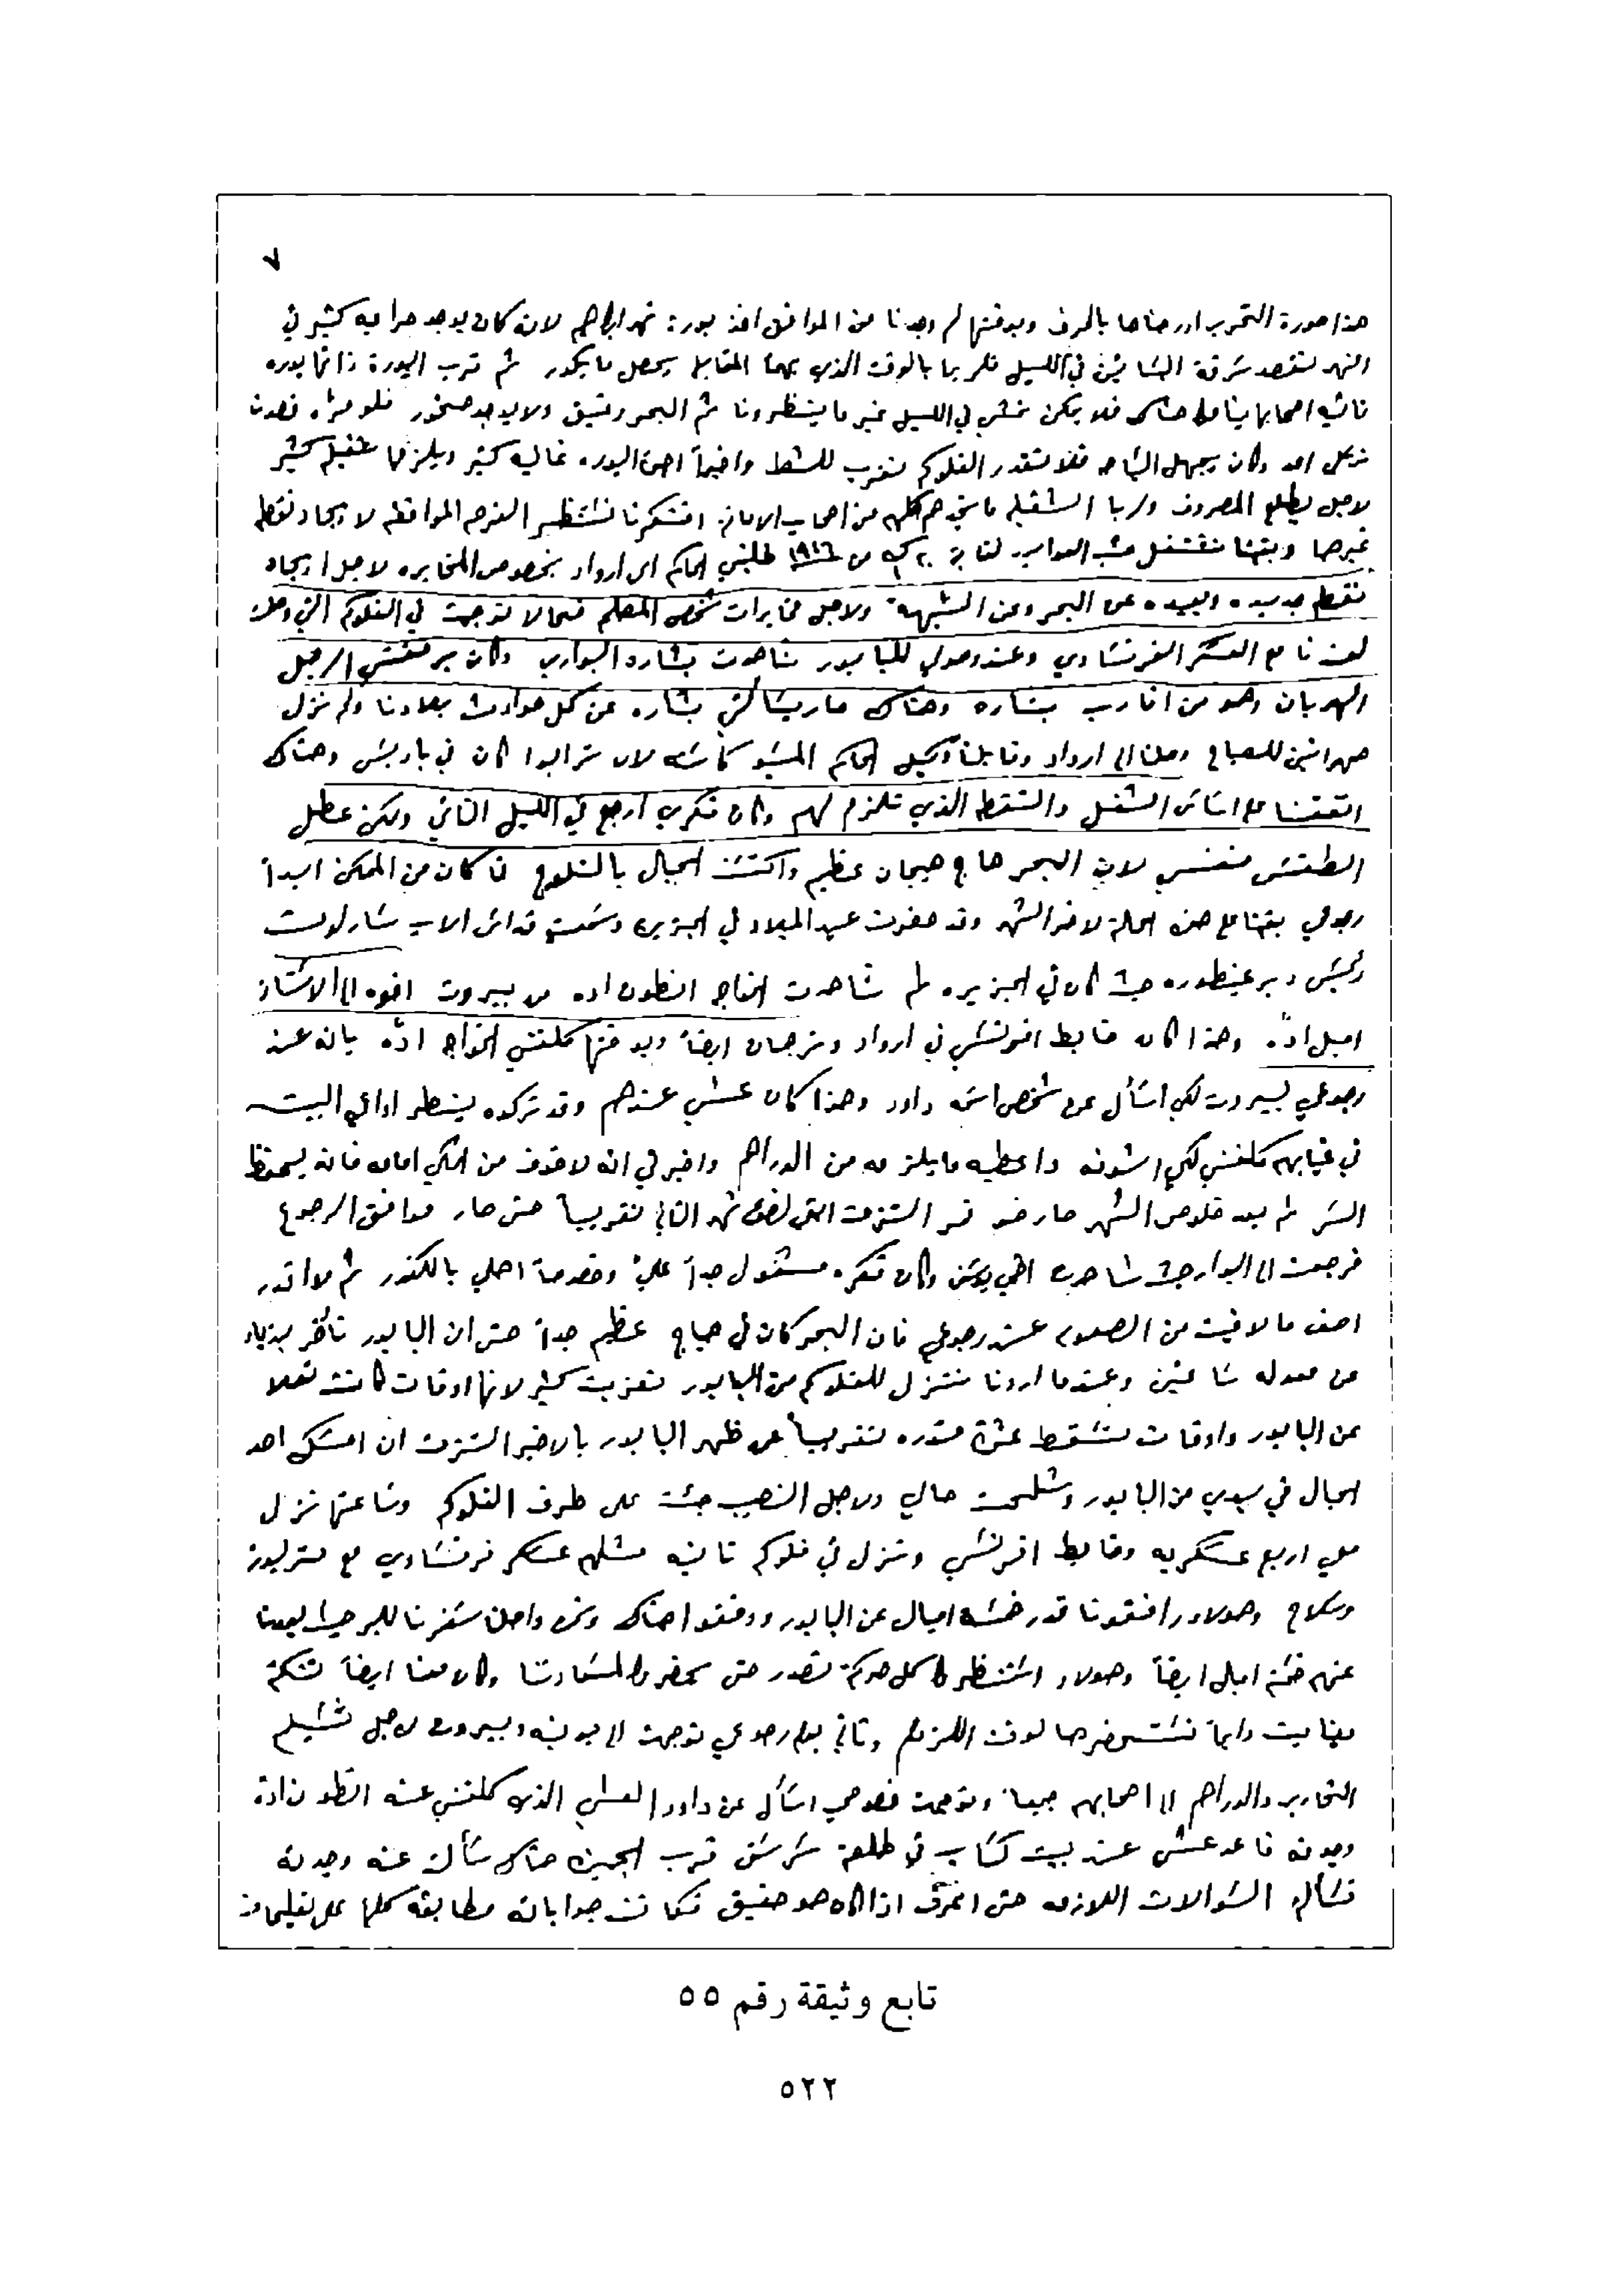 ٧
هذا صورة التحرير ادرجناها بالحرف وبوقتها لم وجدنا من الموافق اخذ بورة نهر ابراهيم لانه كان يوجد حراميه كثير في
النهر لقصد سرقة البساتين في الليل فلربما بالوقت الذي يهمنا المقابله يحصل ما يكدر ثم قرب البورة ذاتها بوره
ثانيه اصحابها يناموا هناك فلا يمكن نمشي في الليل غير ما ينظرونا ثم البحر رقيق ولا يوجد صخور فلو مره قصدنا
ننزل احد وكان يجهل السباحه فلا تقدر الفلوكه تقرب للشط واخيراً اجرة البوره غاليه كثير ويلزمها شغيله كثير
لاجل يطلع المصروف ولربما الشغيله ما بتخرجهم كلهم من اصحاب الامانه افتكرنا ننتظر الفرصه الموافقه لايجاد نقطه
غيرها وبقينا نشتغل حسب العوايد لغاية ٢٠ ك١ سنة ١٩١٦ طلبني الحاكم الى ارواد بخصوص المخابره لاجل ايجاد
نقطه جديده وبعيده عن البحر وعن الشبهة ولاجل مخابرات تخص المصلحه فحالاً توجهت في الفلوكه التي وصلت
لعندنا مع العسكر الفرنساوي وعند وصولي للبابور شاهدت بشاره البواري وكان برفقتي الرجل
الهربان وهو من اقارب بشاره وهناك صار يسألني بشاره عن كل حوادث بلادنا ولم نزل
سهرانين للصباح وصلنا الى ارواد وقابلنا وكيل الحاكم المسيو كاسته لان ترابو كان في باريس وهناك
اتفقنا على اساس الشغل والنقط الذي تلزم لهم وكان فكري ارجع في الليل الثاني ولكن عطل
الطقس منعني لان البحر هاج هيجان عظيم واكتست الجبال بالثلوج فما كان من الممكن ابداً
رجوعي بقينا على هذه الحالة لاخر الشهر وقد حضرت عيد الميلاد في الجزيره وسمعت قداس الاب شارلوت
رئيس دير عينطوره حيث كان في الجزيره ثم شاهدت الخواجه انطون اده من بيروت اخوه الى الاستاذ
اميل ادّه وهذا كان ضابط افرنسي في ارواد وترجمان ايضاً وبوقتها كلفني الخواجه ادّه بانه عند
رجوعي لبيروت لكي اسأل عن شخص اسمه داود وهذا كان عشي عندهم وقد تركوه ينتظر اداعي البيت
في غيابهم كلفني لكي اشوفه واعطيه ما يلزمه من الدراهم واخبرني انه لا خوف من الحكي امامه فانه يحفظ
السر ثم بعد خلوص الشهر صار ضو قمر التزمت ابقى لنصف شهر الثاني تقريباً حتى صار موافق الرجوع
فرجعت الى البوار حيث شاهدت اخي يوسف وكان فكره مشغول جداً عليّ وخصوصاً اهلي بالكفر ثم لا اقدر
اصف ما لاقيت من الصعوبه عند رجوعي فان البحر كان في هياج عظيم جداً حتى ان البابور تأخر بزياده
عن معدله ساعتين وعندما اردنا ننزل للفلوكه من البابور تعذبت كثير لانها اوقات كانت تعلا
عن البابور واوقات تسقط عشرة متوره تقريباً عن ظهر البابور بالاخير التزمت ان امسك احد
الحبال في يدي من البابور وشلحت حالي ولاجل النصيب جئت على طرف الفلوكه وساعتها نزل
معي اربع عسكريه وضابط افرنسي ونزل في فلوكه ثانيه مثلهم عسكر فرنساوي مع متراليوز
وسلاح وهولاء رافقونا قدر خمسة اميال عن البابور ووقفوا هناك ونحن واصلنا سفرنا للبر حيث بعدنا
عنهم خمسة اميال ايضاً وهولاء استنظروا كل حركة تصدر حتى يحضروا لمساعدتنا وكان معنا ايضاً تنكة
بنابيت دايماً نستحضرها لوقت اللزوم وثاني يوم رجوعي توجهت الى جونيه وبيروت لاجل تسليم
التحارير والدراهم الى اصحابهم جميعاً وتوجهت خصوصي اسأل عن داود العشي الذي كلفني عنه انطون ادة
وجدته قاعد عشي عند بيت كساب في طلعة سرسق قرب الجميزه هناك سألت عنه وجدته
فسألته السوالات اللازمه حتى اعرف اذا كان هو حقيق فكانت جواباته مطابقه كلها على تعليمات
تابع وثيقة رقم ٥٥
٥٢٢